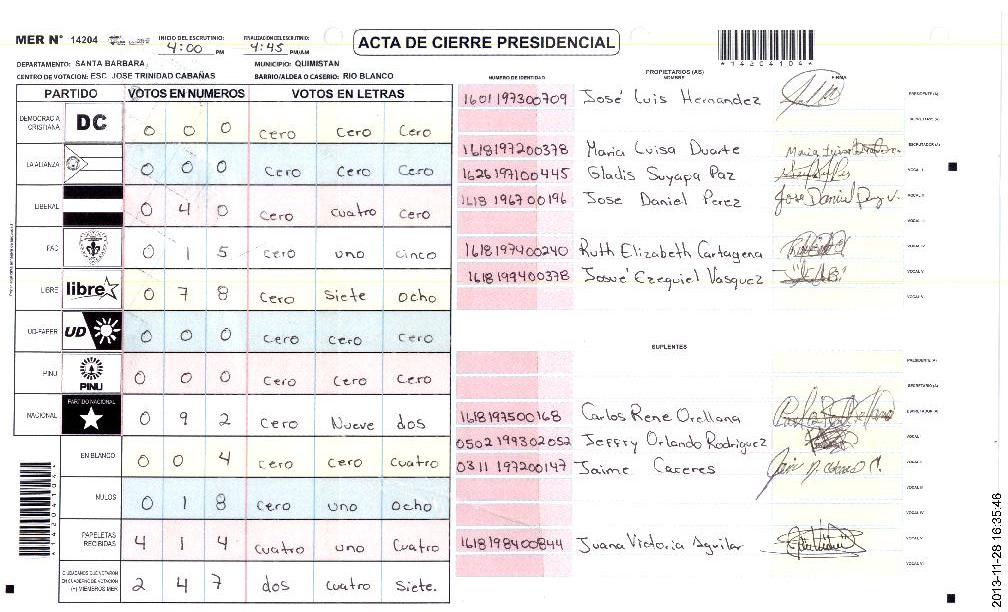 MER N° 14204 INICIO DEL ESCRUTINIO: 4:00 PM FINALIZACION DEL ESCRUTINIO: 4:45 PM/AM ACTA DE CIERRE PRESIDENCIAL
*14204104*
DEPARTAMENTO: SANTA BARBARA MUNICIPIO: QUIMISTAN
CENTRO DE VOTACION: ESC. JOSE TRINIDAD CABAÑAS BARRIO/ALDEA O CASERIO: RIO BLANCO
PARTIDO VOTOS EN NUMEROS VOTOS EN LETRAS
DEMOCRACIA CRISTIANA DC 0 0 0 cero Cero Cero
LA ALIANZA 0 0 0 Cero Cero Cero
LIBERAL 0 4 0 cero cuatro Cero
PAC 0 1 5 cero uno cinco
LIBRE libre 0 7 8 Cero Siete Ocho
UD-FAPER UD 0 0 0 cero cero Cero
PINU PINU 0 0 0 Cero Cero Cero
NACIONAL PARTIDO NACIONAL 0 9 2 Cero Nueve dos
EN BLANCO 0 0 4 cero cero cuatro
NULOS 0 1 8 cero uno Ocho
PAPELETAS RECIBIDAS 4 1 4 cuatro uno Cuatro
CIUDADANOS QUE VOTARON EN CUADERNO DE VOTACION (+) MIEMBROS MER 2 4 7 dos Cuatro Siete.
PROPIETARIOS (AS)
NUMERO DE IDENTIDAD NOMBRE FIRMA
1601197300709 José Luis Hernandez PRESIDENTE (A)
SECRETARIO (A)
1618197200378 Maria Luisa Duarte ESCRUTADOR (A)
1626197100445 Gladis Suyapa Paz VOCAL I
1618 1967 00196 Jose Daniel Perez VOCAL II
VOCAL III
1618197400240 Ruth Elizabeth Cartagena VOCAL IV
1618199400378 Josué Ezequiel Vasquez VOCAL V
VOCAL VI
SUPLENTES
PRESIDENTE (A)
SECRETARIO (A)
1618197500168 Carlos Rene Orellana ESCRUTADOR (A)
0502199302052 Jeffry Orlando Rodriguez VOCAL I
0311197200147 Jaime Caceres VOCAL II
VOCAL III
VOCAL IV
1618198400844 Juana Victoria Aguilar VOCAL V
VOCAL VI
*14204104*
2013-11-28 16:35:46